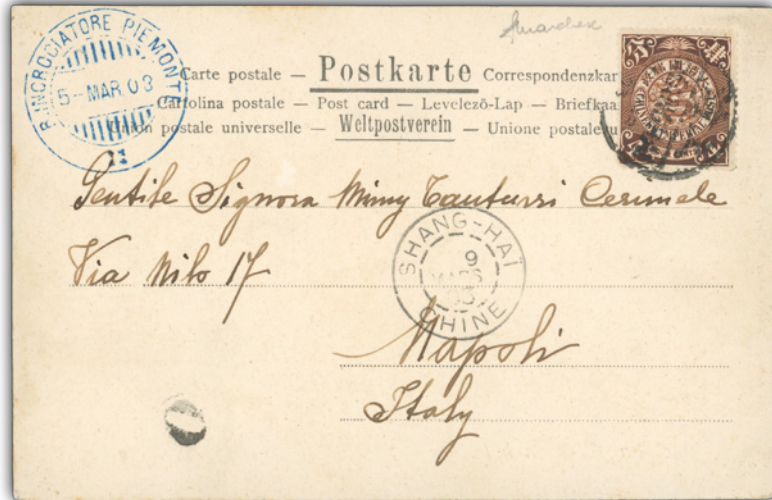 R. INCROCIATORE PIEMONTE
5-MAR 03
Carte postale — Postkarte Correspondenzkar
Cartolina postale — Post card — Levelező-Lap — Briefkaa
Union postale universelle — Weltpostverein — Unione postale u
Gentile Signora Mimy Cauturri Cerimele
Via Nilo 17
SHANG-HAÏ
9
MARS
03
CHINE
Napoli
Italy